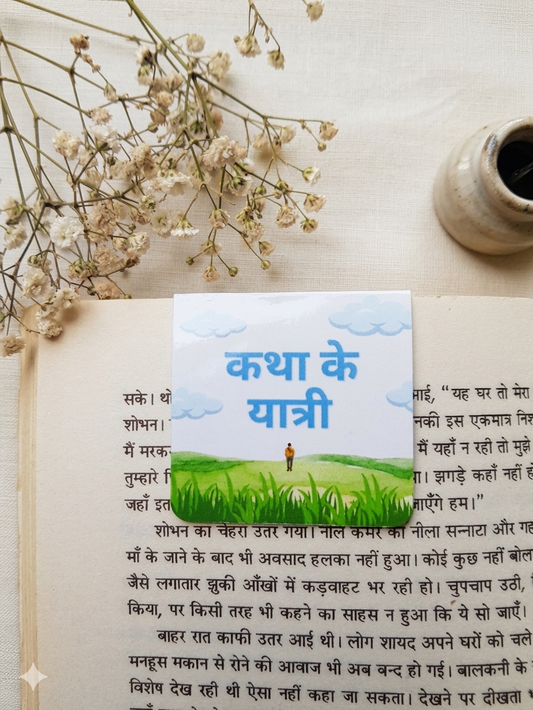 कथा के
यात्री
सके। थो
माई, “यह घर तो मेरा
शोभन।
नकी इस एकमात्र
मैं मरक
में यहाँ न रही तो मुझे
तुम्हारे
झगड़े कहाँ नहीं
जहाँ इत
जाएँगे हम।”
शोभन का चेहरा उतर गया। नीले कमरे का नीला सन्नाटा और
माँ के जाने के बाद भी अवसाद हलका नहीं हुआ। कोई कुछ नहीं
जैसे लगातार झुकी आँखों में कड़वाहट भर रही हो। चुपचाप उठी,
किया, पर किसी तरह भी कहने का साहस न हुआ कि ये सो जाएँ।
बाहर रात काफी उतर आई थी। लोग शायद अपने घरों को चले
मनहूस मकान से रोने की आवाज भी अब वन्द हो गई। बालकनी के
विशेष देख रही थी ऐसा नहीं कहा जा सकता। देखने पर दीखता